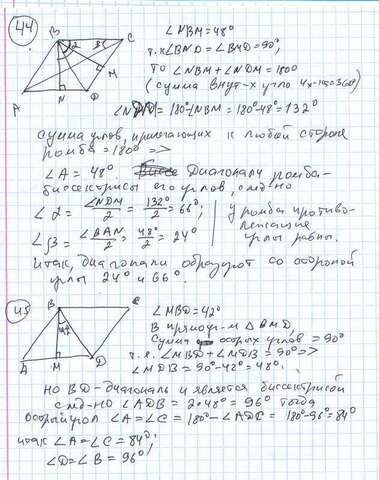 44
B
α
β
C
M
A
N
D
∠NBM=48°
т.к ∠BND=∠BMD=90°,
то ∠NBM+∠NDM=180°
(сумма внутр-х угло 4х-уг=360°)
=180°-∠NBM=180°-48°=132°
сумма углов, прилегающих к любой стороне
ромба=180° =>
∠A=48°. Диагонали ромба-
биссектрисы его углов, след-но
∠α=∠NDM/2=132°/2=66°;
∠β=∠BAN/2=48°/2=24°
у ромба противо-
лежащие
углы равны.
итак, диагонали образуют со стороной
углы 24° и 66°.
45
B
C
42°
A
M
D
∠MBD=42°
В прямоуг-м ΔBMD,
Сумма острых углов=90°
т.е. ∠MBD+∠MDB=90° =>
∠MDB=90°-42°=48°.
Но BD-диагональ и является биссектрисой
след-но ∠ADB=2·48°=96° тогда
острый угол ∠A=∠C=180°-∠ADC=180°-96°=84°
итак ∠A=∠C=84°;
∠D=∠B=96°